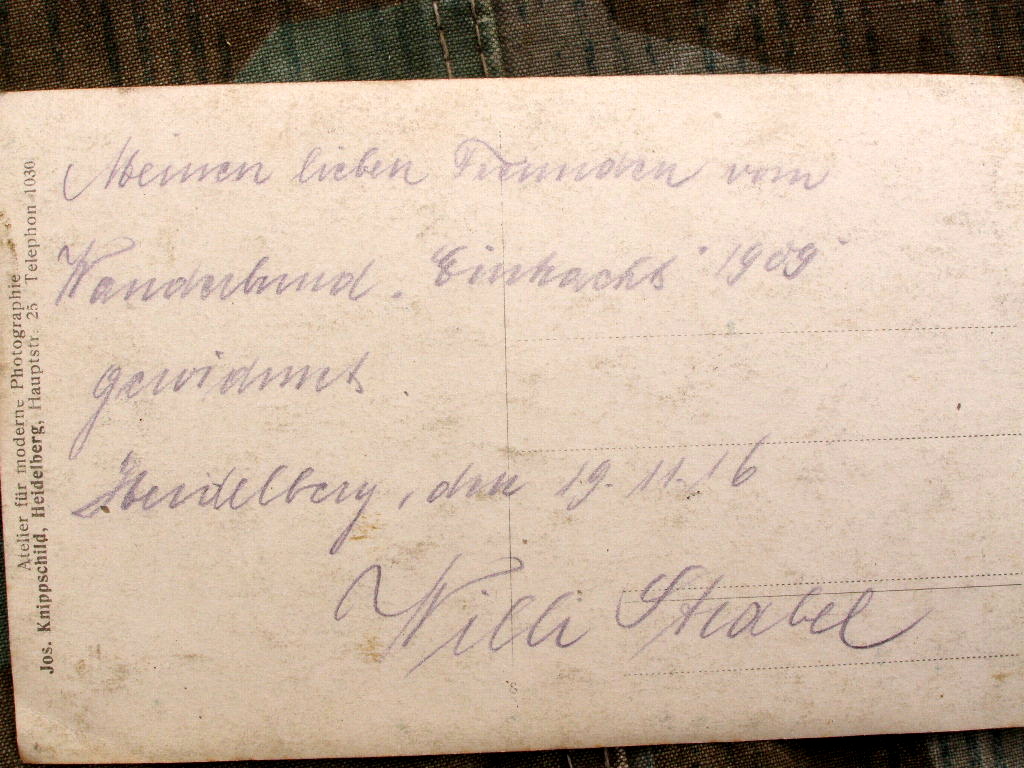 Meinen lieben Freunden vom
Wanderbund "Eintracht" 1909
gewidmet.
Heidelberg, den 19.11.16
Willi Strabel
Atelier für moderne Photographie
Jos. Knippschild, Heidelberg, Hauptstr. 25 Telephon 1030